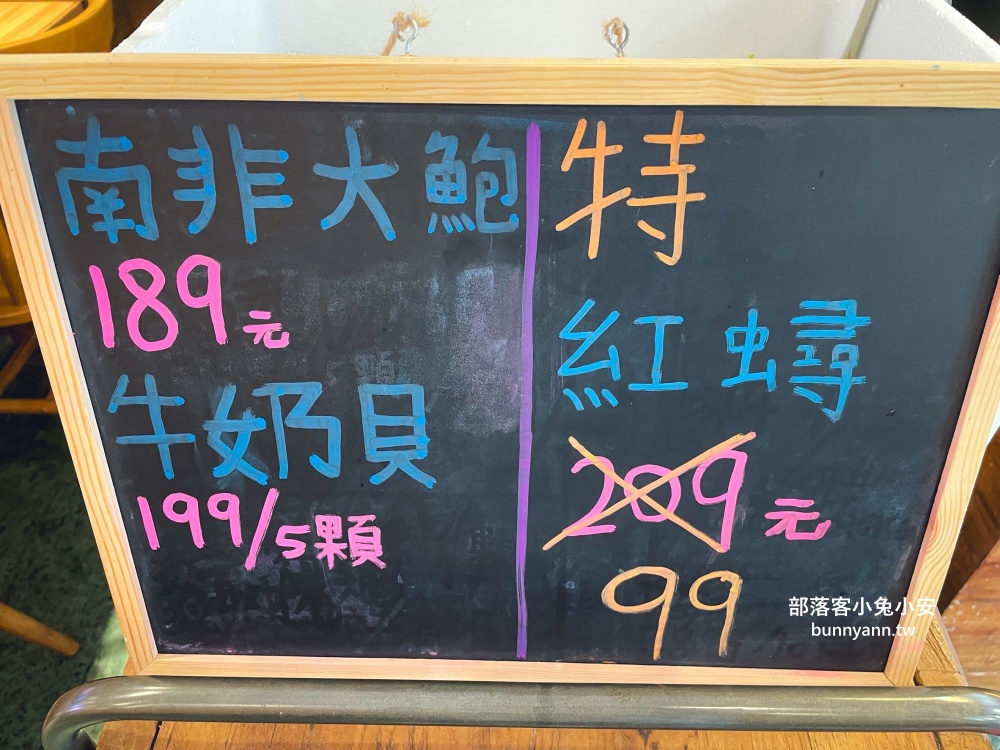 南非大鮑
189元
牛奶貝
199/5顆
特
紅蟳
209元
99
部落客小兔小安
bunnyann.tw